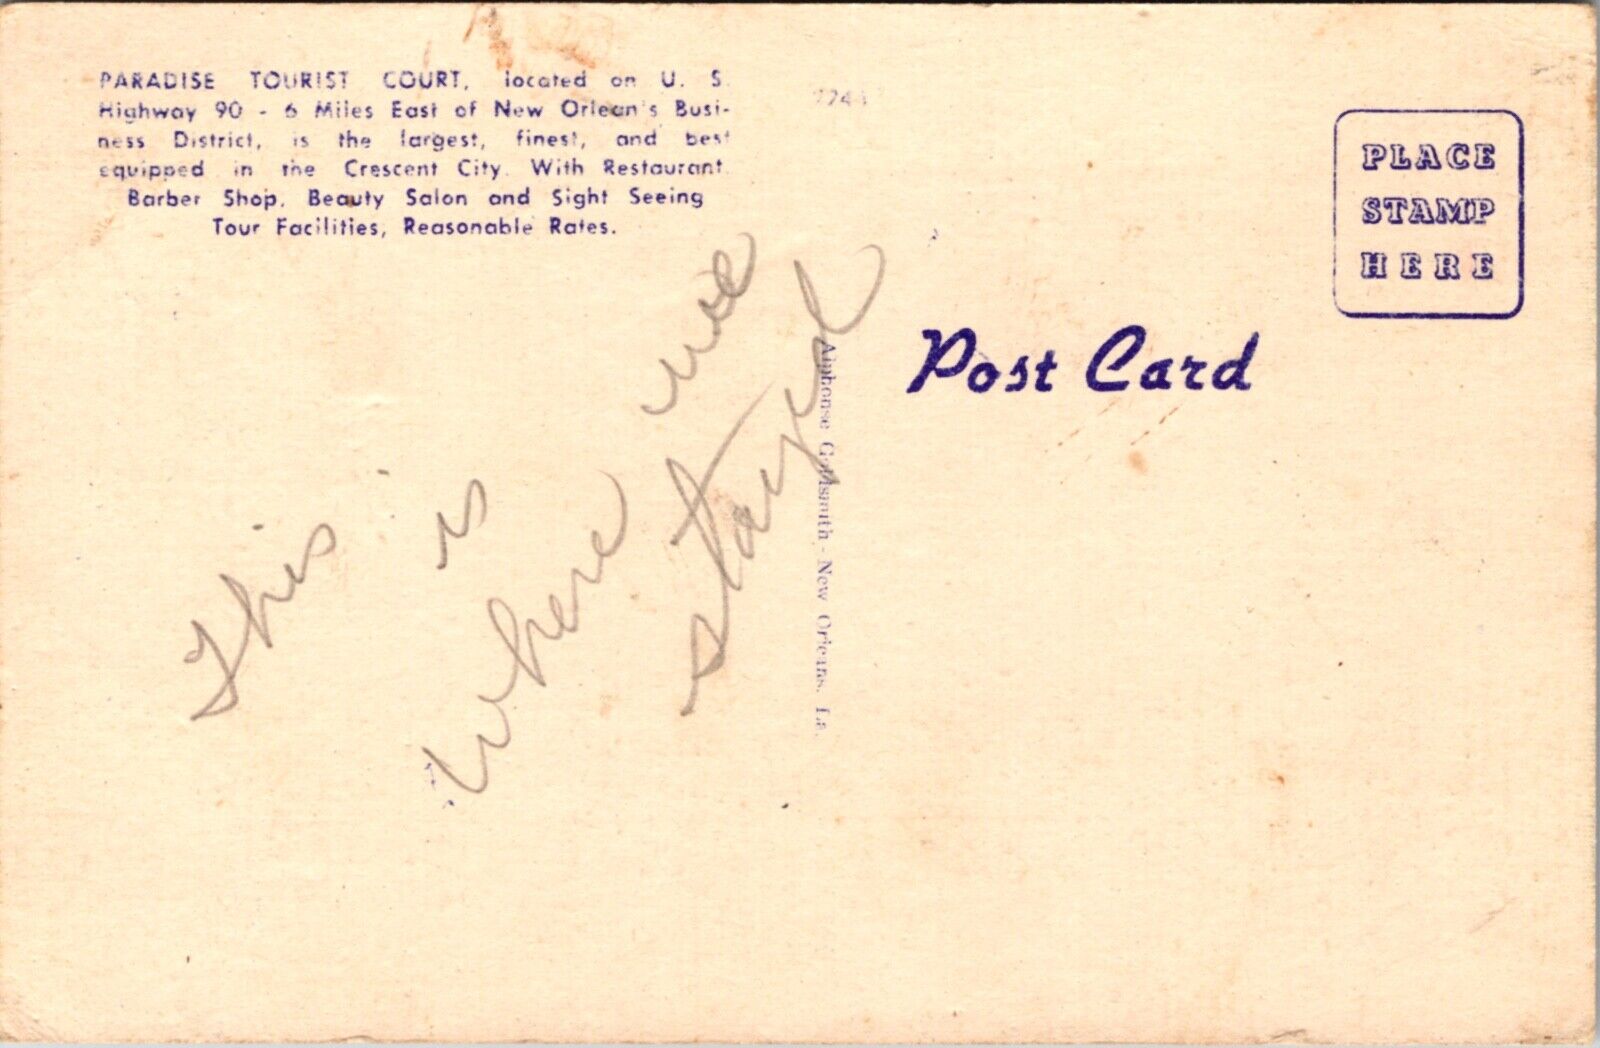 PARADISE TOURIST COURT, located on U. S.
Highway 90 - 6 Miles East of New Orlean's Busi-
ness District, is the largest, finest, and best
equipped in the Crescent City. With Restaurant,
Barber Shop, Beauty Salon and Sight Seeing
Tour Facilities, Reasonable Rates.
This is
where we
stayed
Alphonse Goldsmith - New Orleans, La.
Post Card
PLACE
STAMP
HERE